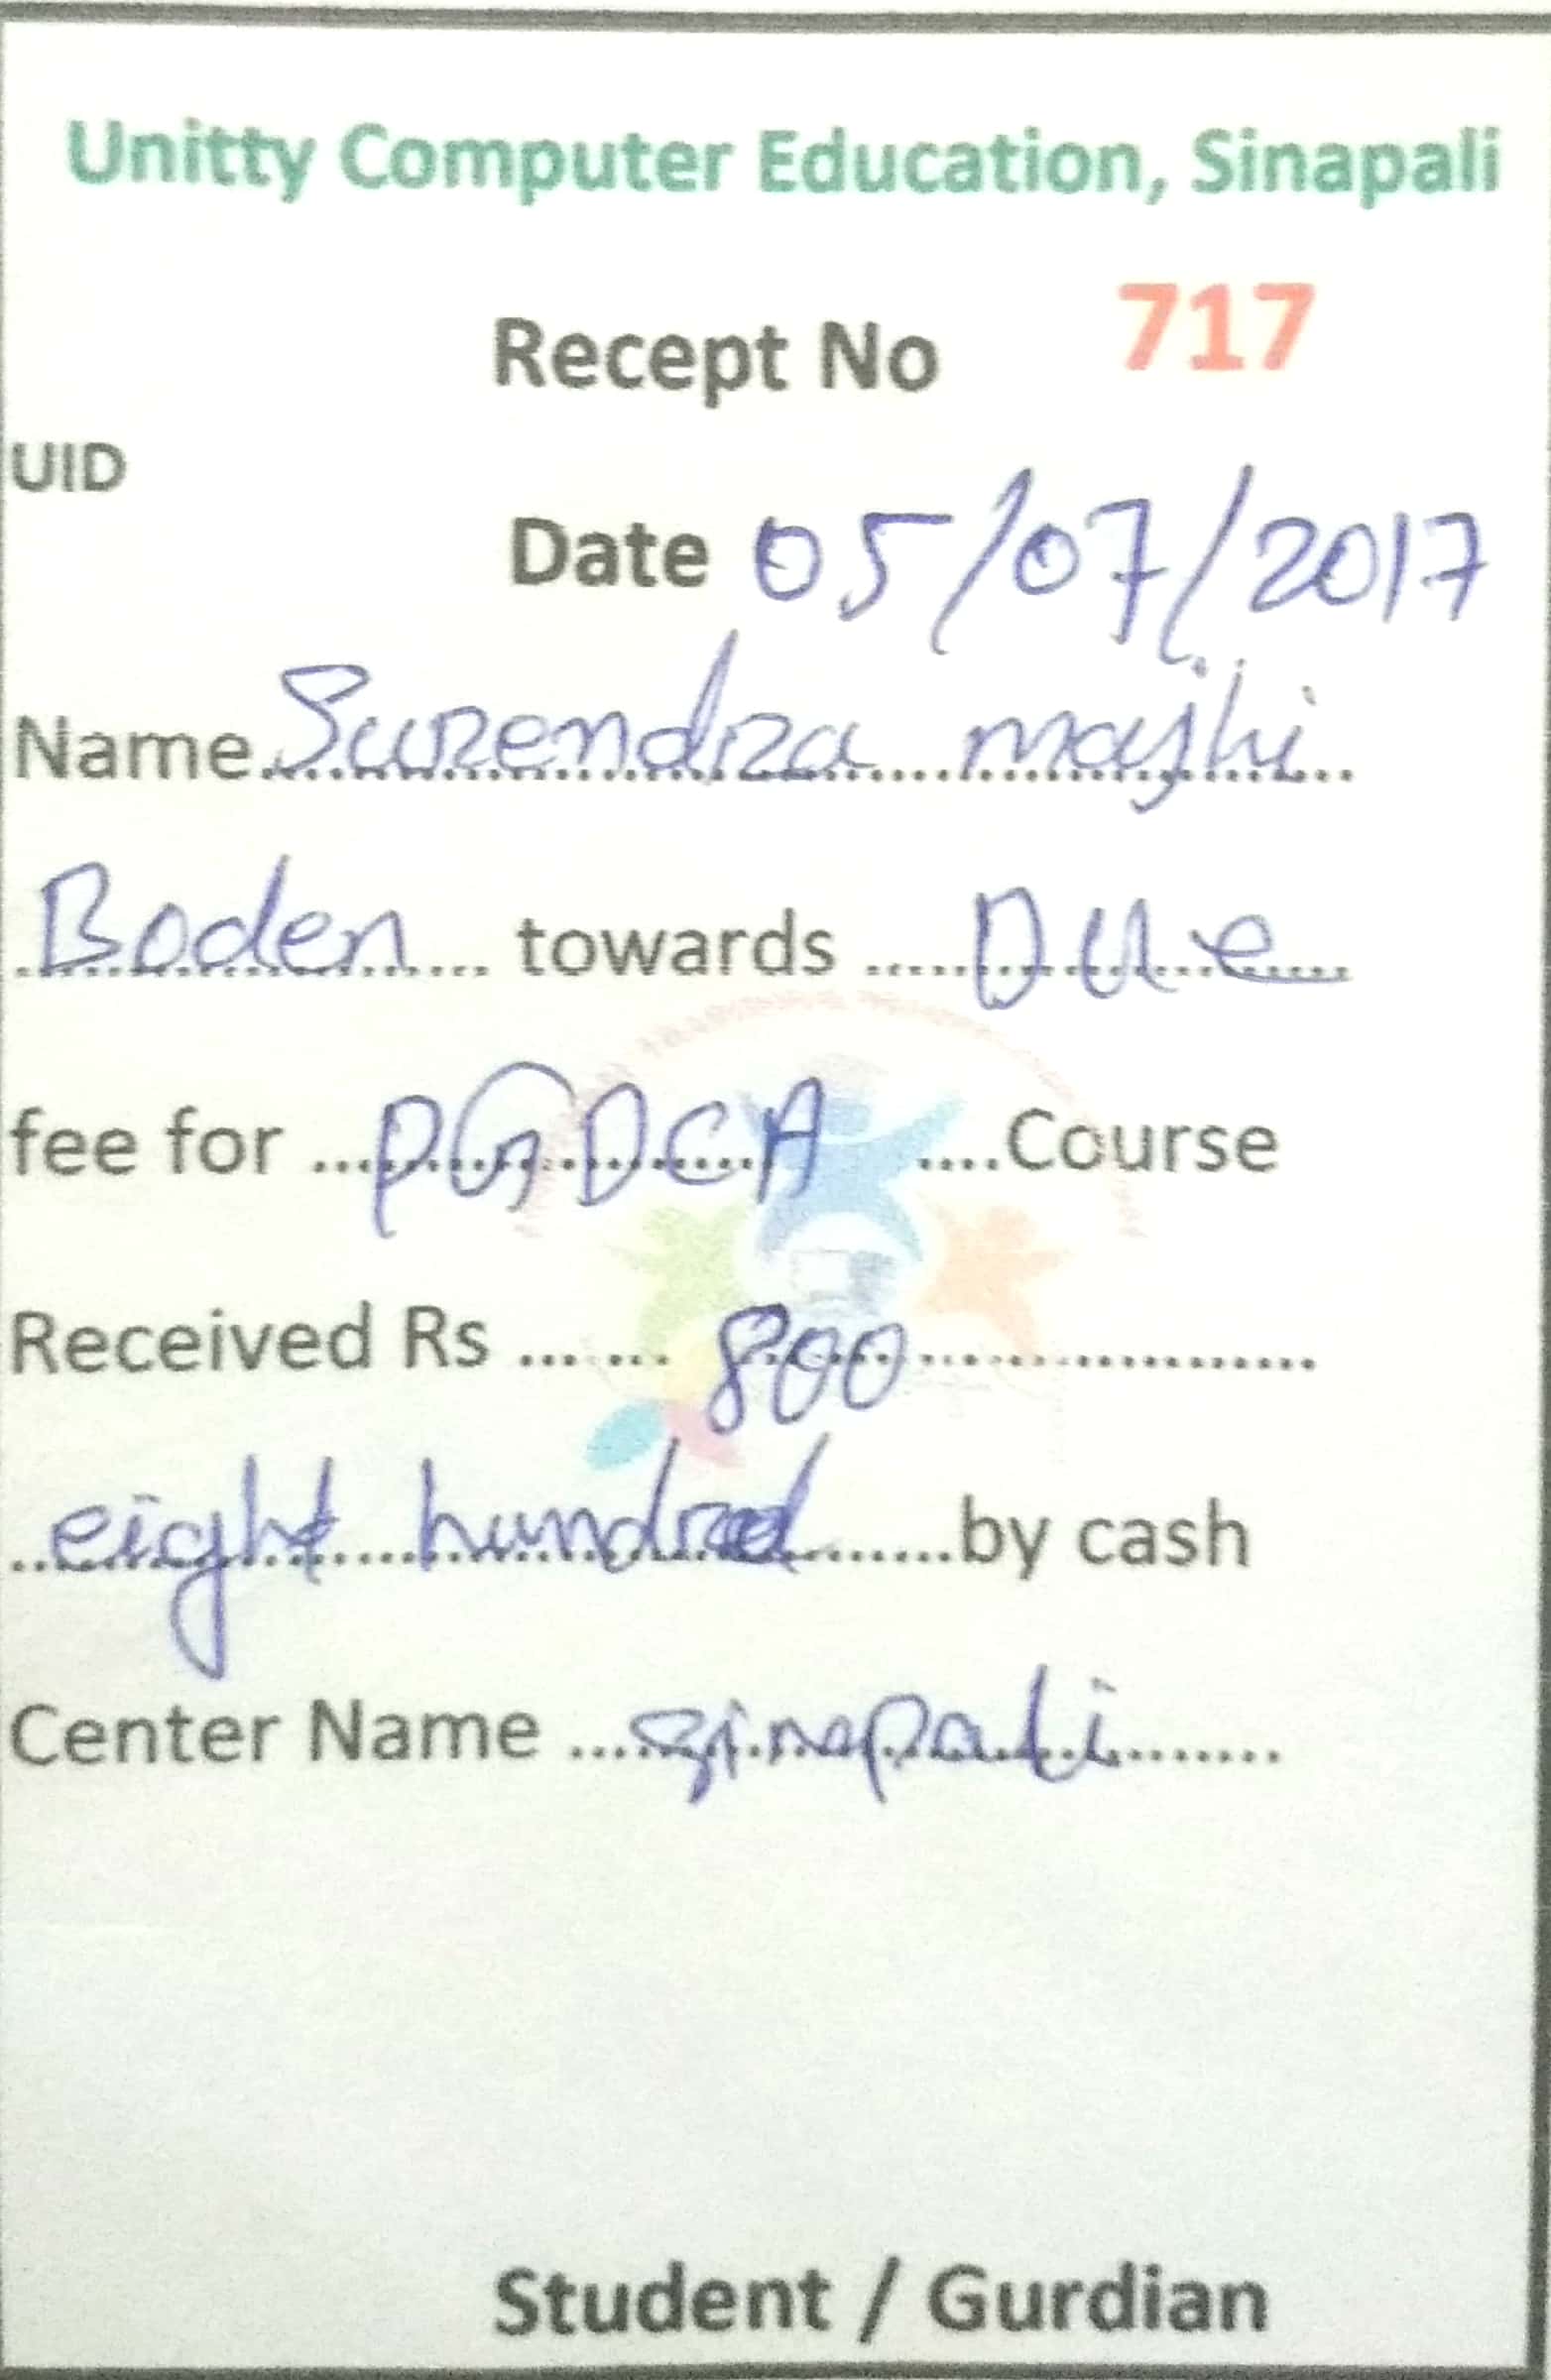 Unitty Computer Education, Sinapali
Recept No 717
UID
Date 05/07/2017
Name Surendra majhi
Boden towards Due
fee for PGDCA Course
Received Rs 800
eight hundred by cash
Center Name sinapali
Student / Gurdian